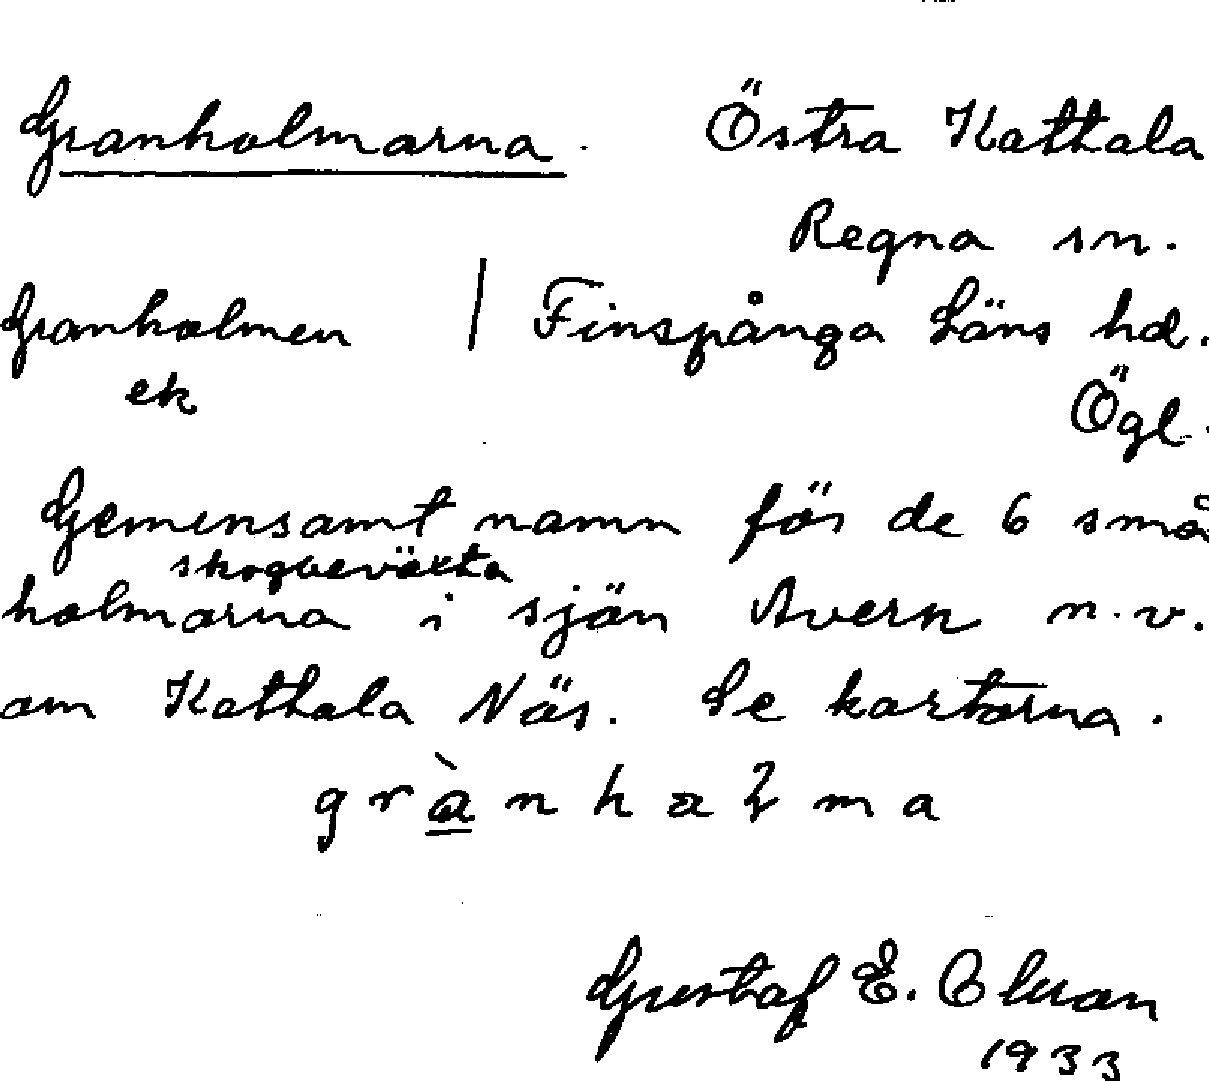 Granholmarna. Östra Kattala
Regna sn.
Granholmen | Finspånga Läns hd.
ek Ögl.
Gemensamt namn för de 6 små
skogbeväxta
holmarna i sjön Avern n.v.
om Kattala Näs. Se kartorna.
grànholma
Gustaf E.
1933